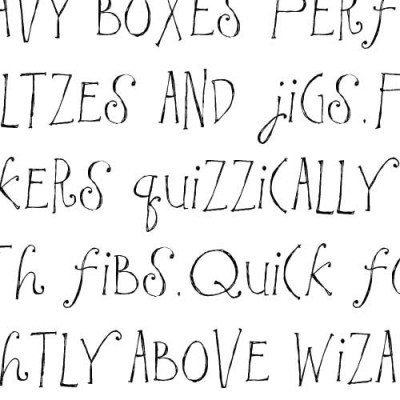 AVY BOXES PERF
LTZES AND jiGS. F
KERS quiZZiCALLY
TH fiBS. QuiCK fO
hTLY ABOVE WiZA